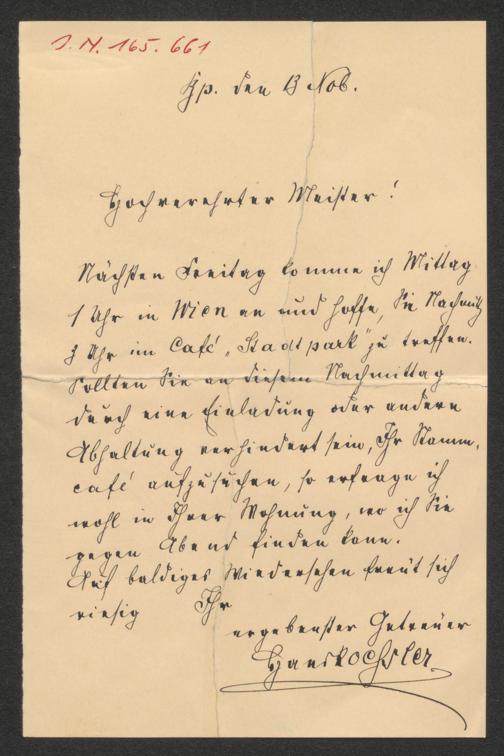 J. N. 165.661
Bp. den 13 Nov.
Hochverehrter Meister!
Nächsten Freitag komme ich Mittag
1 Uhr in Wien an und hoffe, Sie Nachmittg
3 Uhr im Café „Stadtpark" zu treffen.
Sollten Sie an diesem Nachmittag
durch eine Einladung oder andere
Abhaltung verhindert sein, Ihr Stamm-
café aufzusuchen, so erfrage ich
wohl in Ihrer Wohnung, wo ich Sie
gegen Abend finden kann.
Auf baldiges Wiedersehen freut sich
riesig Ihr
ergebenster Getreuer
Hans